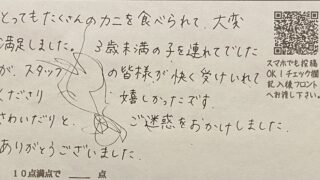 とってもたくさんのカニを食べられて、大変
満足しました。 3歳未満の子を連れてでした
が、スタッフの皆様が快く受けいれて
くださり 嬉しかったです。
さわいだりと、ご迷惑をおかけしました。
ありがとうございました。
スマホでも投稿
OK!チェック欄
記入後フロント
へお越し下さい。
10点満点で 点